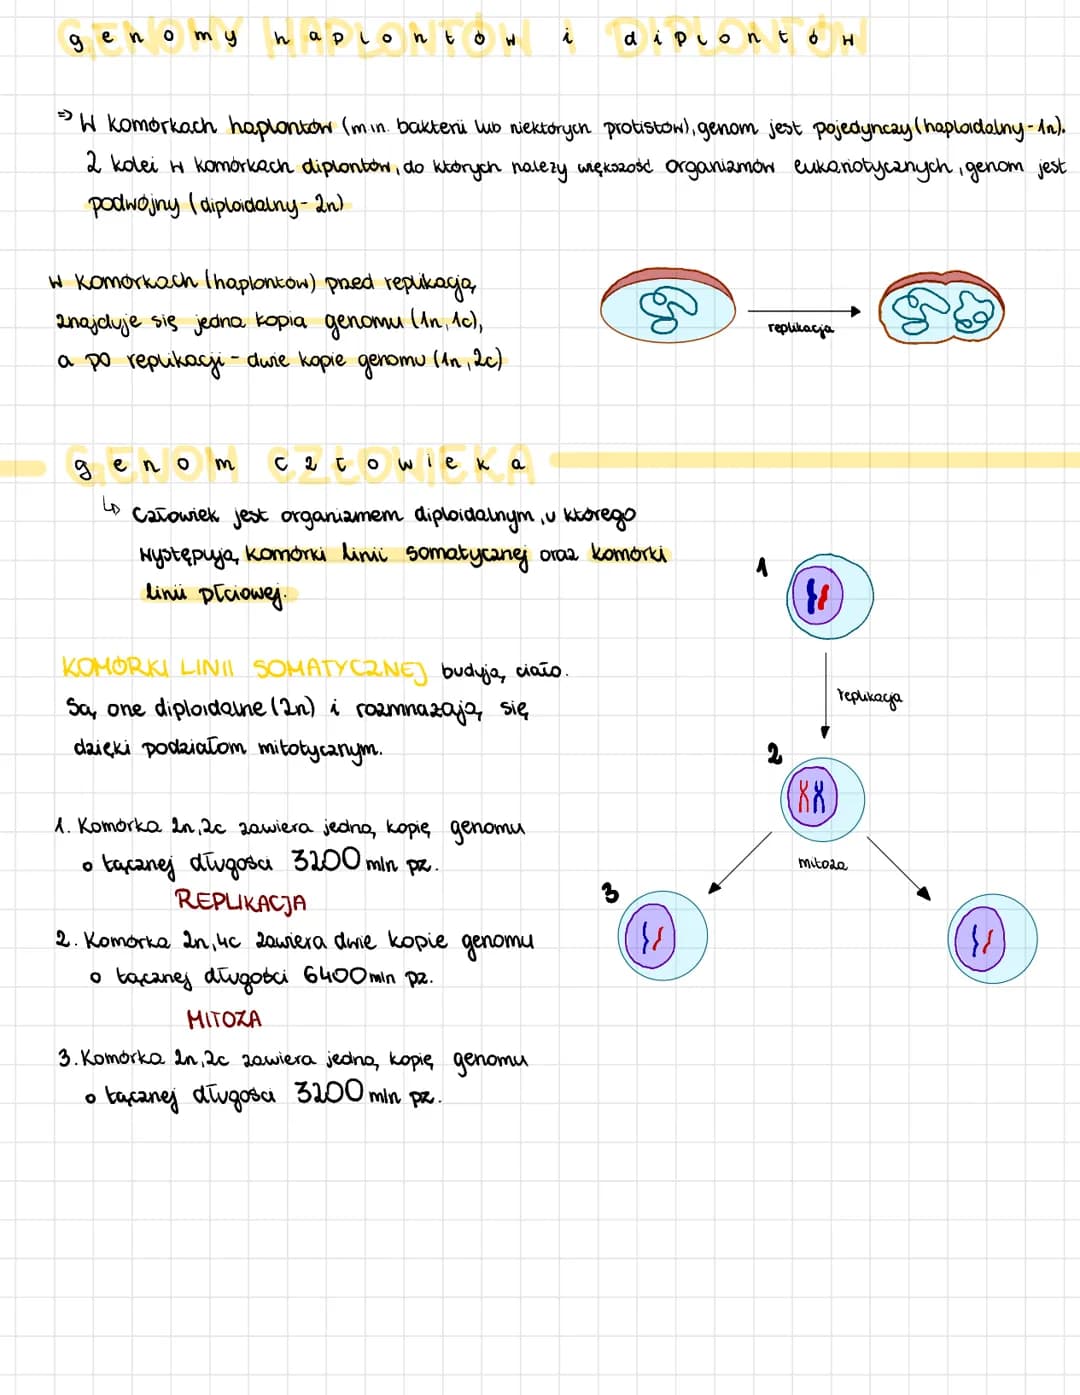 genomy haplontów i diplontów
⇒ W komórkach haplontów (m.in. bakterii lub niektórych protistów), genom jest pojedynczy (haploidalny - 1n).
Z kolei w komórkach diplontów, do których należy większość organizmów eukariotycznych, genom jest
podwójny (diploidalny - 2n)
W komórkach (haplontów) przed replikacją,
znajduje się jedna kopia genomu (1n, 1c),
a po replikacji - dwie kopie genomu (1n, 2c)
replikacja
genom człowieka
↳ Człowiek jest organizmem diploidalnym, u którego
występują komórki linii somatycznej oraz komórki
linii płciowej.
1
KOMÓRKI LINII SOMATYCZNEJ budują ciało.
Są one diploidalne (2n) i rozmnażają się
dzięki podziałom mitotycznym.
replikacja
2
1. Komórka 2n, 2c zawiera jedną kopię genomu
o łącznej długości 3200 mln pz.
REPLIKACJA
mitoza
3
2. Komórka 2n, 4c zawiera dwie kopie genomu
o łącznej długości 6400 mln pz.
MITOZA
3. Komórka 2n, 2c zawiera jedną kopię genomu
o łącznej długości 3200 mln pz.